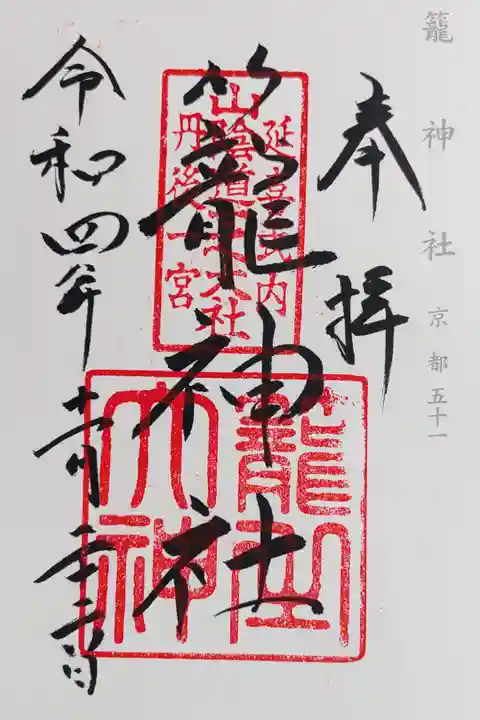 籠神社 京都五十一
奉拝
延喜式内
山陰道一大社
丹後一宮
籠神社
籠之
大神
令和四年